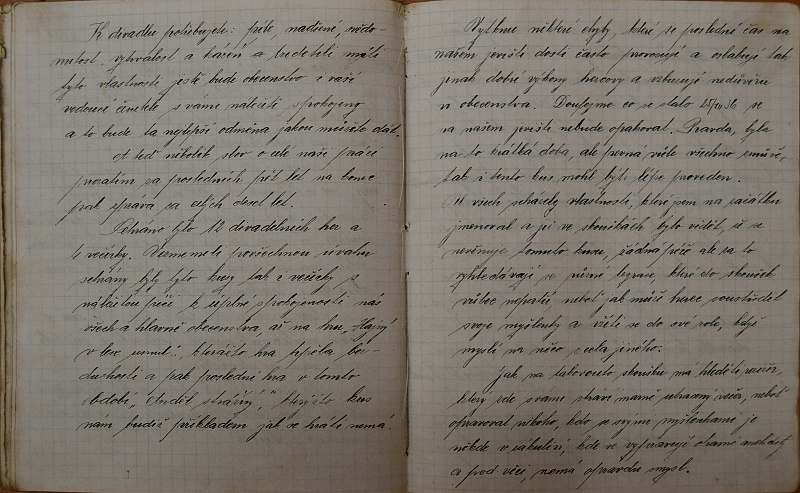 K divadlu potřebujete: píle, nadšení, svědo-
mitost, vytrvalost a kázeň a budeteli míti
tyto vlastnosti jistě bude obecenstvo i vaši
vedoucí činitelé s vámi náležitě spokojeny
a to bude ta nejlepší odměna jakou můžete dát.
A teď několik slov o celé naší práci
prozatím za posledních pět let na konec
pak zpráva za celých deset let.
Sehráno bylo 12 divadelních her a
4 večírky. Vezmemeli povšechnou úvahu
sehrány byly tyto kusy tak i večírky s
náležitou péčí k úplné spokojenosti nás
všech a hlavně obecenstva, až na hru "Hajný
v lese usnul", kterážto hra trpěla bez-
duchostí a pak poslední hra v tomto
období "Anděl strážný", kterýžto kus
nám budiž příkladem jak se hráti nemá.
Vytknu některé chyby, které se poslední čas na
našem jevišti dosti často provozují a oslabují tak
jinak dobré výkony herců a vzbuzují nedůvěru
u obecenstva. Doufejme co se stalo 36 se
na našem jevišti nebude opakovat. Pravda, byla
na to krátká doba, ale pevná vůle všechno zmůže,
tak i tento kus mohl býti lépe proveden.
U všech scházely vlastnosti, které jsem na začátku
jmenoval a již ve zkouškách bylo vidět, že se
nevěnuje tomuto kusu, žádná péče ale za to
vyhledávají se různé legrace, které do zkoušek
vůbec nepatří, neboť jak může herec soustředit
svoje myšlenky a vžíti se do své role, když
myslí na něco zcela jiného.
Jak na takovouto zkoušku má hleděti režisér,
který zde s vámi tráví marně ztracený večer, neboť
opravovat někoho, kdo se svými myšlenkami je
někde v zákulisí, kde se vypravují různé anekdoty
a pod. věci, nemá opravdu smysl.